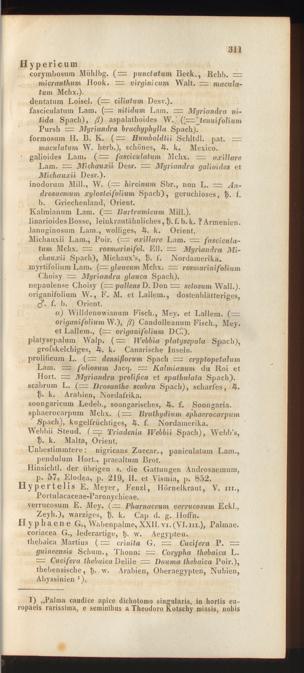 311
Hypericum
corymbosum Mühlbg. (= punctatum Beck., Rchb. =
micranthum Hook. = virginicum Walt. = macula-
tum Mchx.).
dentatum Loisel. (= ciliatum Desr.).
fasciculatum Lam. (= nitidum Lam. = Myriandra ni-
tida Spach), β) aspalathoides W. (= tenuifolium
Pursh = Myriandra brachyphylla Spach).
formosum H. B. K. (= Humboldtii Schltdl. pat. =
maculatum W. herb.), schönes, ♃. k. Mexico.
galioides Lam. (= fasciculatum Mchx. = axillare
Lam. = Michauxii Desr. = Myriandra galioides et
Michauxii Desr.).
inodorum Mill., W. (= hircinum Sbr., non L. = An-
drosaemum xylosteifolium Spach), geruchloses, ♄. f.
b. Griechenland, Orient.
Kalmianum Lam. (= Bartramicum Mill.).
linarioides Bosse, leinkrautähnliches, ♄. f. b. k. ? Armenien.
lanuginosum Lam., wolliges, ♃. k. Orient.
Michauxii Lam., Poir. (= axillare Lam. = fascicula-
tum Mchx. = rosmarinifol. Ell. = Myriandra Mi-
chauxii Spach), Michaux's, ♄. f. Nordamerika.
myrtifolium Lam. (= glaucum Mchx. = rosmarinifolium
Choisy = Myriandra glauca Spach).
nepaulense Choisy (= pallens D. Don = setosum Wall.).
origanifolium W., F. M. et Lallem., dostenblätteriges,
♂. f. b. Orient.
α) Willdenowianum Fisch., Mey. et Lallem. (=
origanifolium W.), β) Candolleanum Fisch., Mey.
et Lallem., (= origanifolium DC.).
platysepalum Walp. (= Webbia platysepala Spach),
grofskelchiges, ♃. k. Canarische Inseln.
prolificum L. (= densiflorum Spach = cryptopetalum
Lam. = foliosum Jacq. = Kalmianum du Roi et
Hort. = Myriandra prolifica et spathulata Spach).
scabrum L. (= Drosanthe scabra Spach), scharfes, ♃.
♄. k. Arabien, Nordafrika.
soongaricum Ledeb., soongarisches, ♃. f. Soongaria.
sphaerocarpum Mchx. (= Brathydium sphaerocarpum
Spach), kugelfrüchtiges, ♃. f. Nordamerika.
Webbii Steud. (= Triadenia Webbii Spach), Webb's,
♄. k. Malta, Orient.
Unbestimmtere: nigricans Zuccar., paniculatum Lam.,
pendulum Hort., praealtum Brot.
Hinsichtl. der übrigen s. die Gattungen Androsaemum,
p. 57, Elodea, p. 219, H. et Vismia, p. 852.
Hypertelis E. Meyer, Fenzl, Hörnelkraut, V. III.,
Portulacaceae-Paronychieae.
verrucosum E. Mey. (= Pharnaceum verrucosum Eckl.,
Zeyh.), warziges, ♄. k. Cap d. g. Hoffn.
Hyphaene G., Wabenpalme, XXII. VI. (VI. III.), Palmae.
coriacea G., lederartige, ♄. w. Aegypten.
thebaica Martius (= crinita G. = Cucifera P. =
guineensis Schum., Thonn. = Corypha thebaica L.
= Cucifera thebaica Delile = Douma thebaica Poir.),
thebensische, ♄. w. Arabien, Oberaegypten, Nubien,
Abyssinien ¹).
1) „Palma caudice apice dichotomo singularis, in hortis eu-
ropaeis rarissima, e seminibus a Theodoro Kotschy missis, nobis